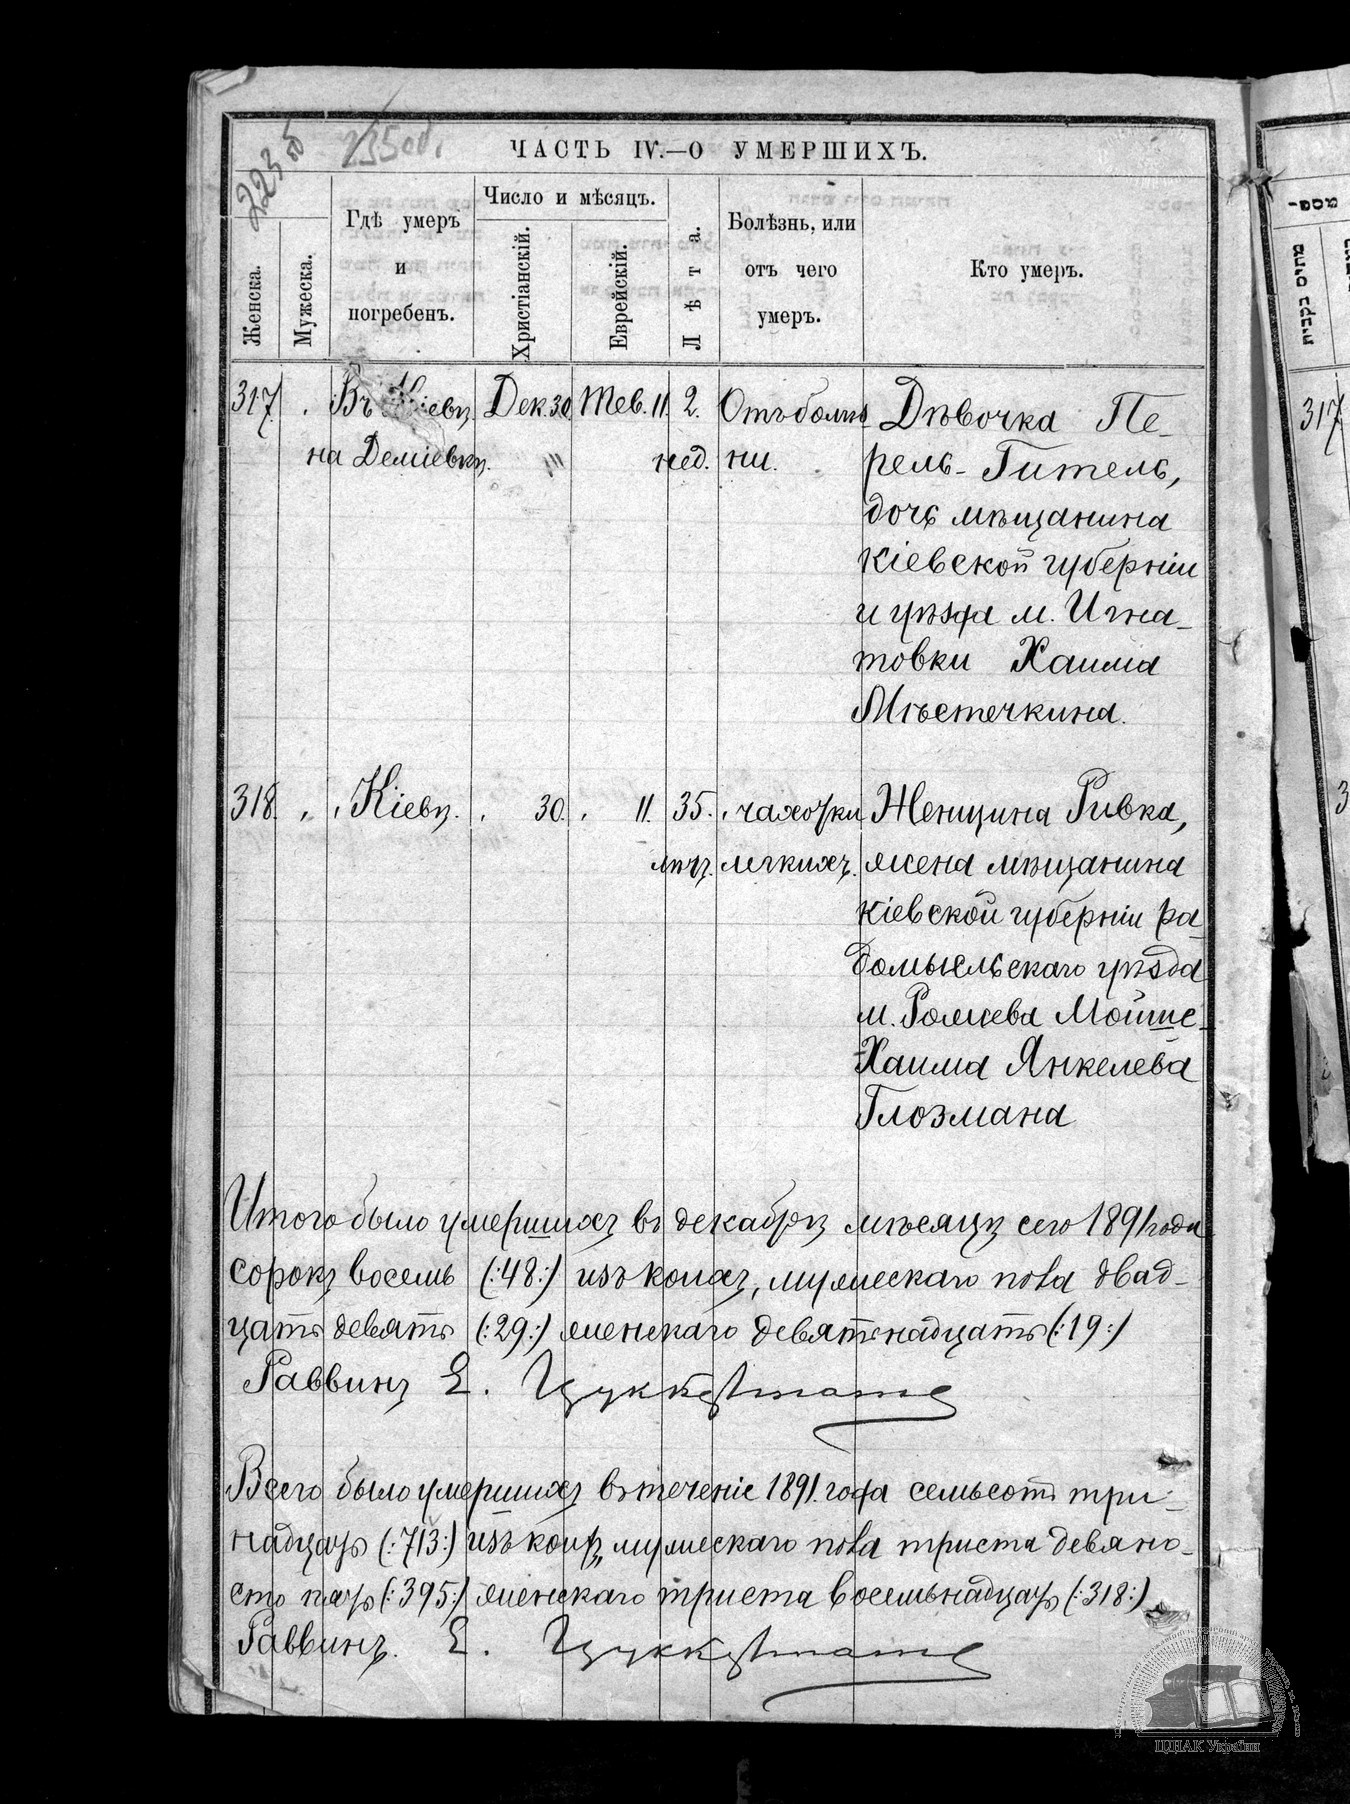 223 об
235 об.
ЧАСТЬ IV.—О УМЕРШИХЪ.
Женска.
Мужеска.
Гдѣ умеръ
и
погребенъ.
Число и мѣсяцъ.
Христіанскій.
Еврейскій.
Лѣта.
Болѣзнь, или
отъ чего
умеръ.
Кто умеръ.
317. „ Въ Кіевѣ Дек. 30. Тев. 11. 2. Отъ болѣз- Дѣвочка Пе-
на Деміевкѣ. нед. ни. рель-Гитель,
дочь мѣщанина
Кіевской губерніи
и уѣзда м. Игна-
товки Хаима
Мѣстечкина.
318. „ „ Кіевѣ. „ 30. „ 11. 35. „ чахотки Женщина Ривка,
лѣтъ. легкихъ. жена мѣщанина
Кіевской губерніи ра-
домысльскаго уѣзда
м. Рожева Мойше-
Хаима Янкелева
Глозмана
Итого было умершихъ въ декабрѣ мѣсяцѣ сего 1891 года
сорокъ восемь (:48:) изъ коихъ, мужескаго пола двад-
цать девять (:29:) женскаго девятьнадцать (:19:)
Раввинъ Е. Цуккерманъ
Всего было умершихъ въ теченіе 1891. года семьсотъ три-
надцать (:713:) изъ коихъ, мужескаго пола триста девяно-
сто пять (:395:) женскаго триста восемьнадцать (:318:)
Раввинъ. Е. Цуккерманъ
ЦДІАК України
317
3